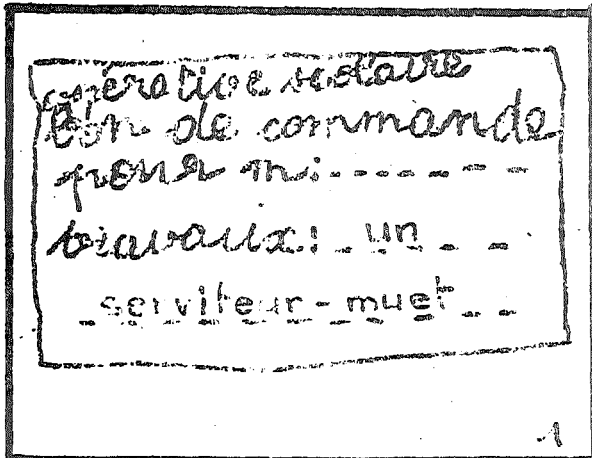 coopérative scolaire
Bon de commande
pour m:--------
travaux: _ un _ _
_ serviteur-muet _ _
1